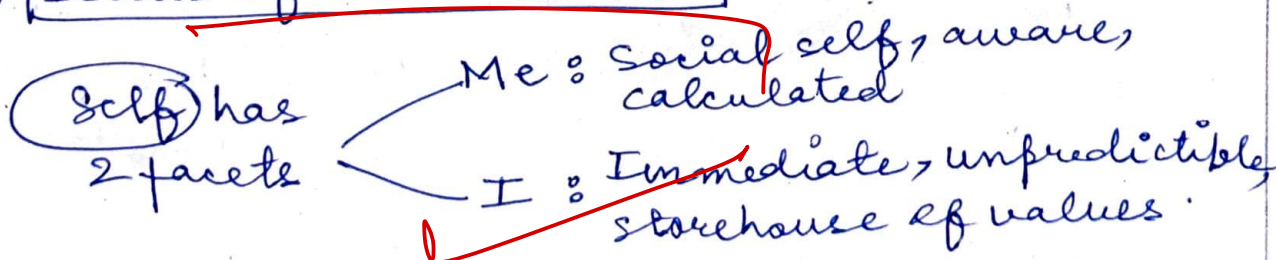 Self has
2 facets
Me : Social self, aware,
calculated
I : Immediate, unpredictible,
storehouse of values.